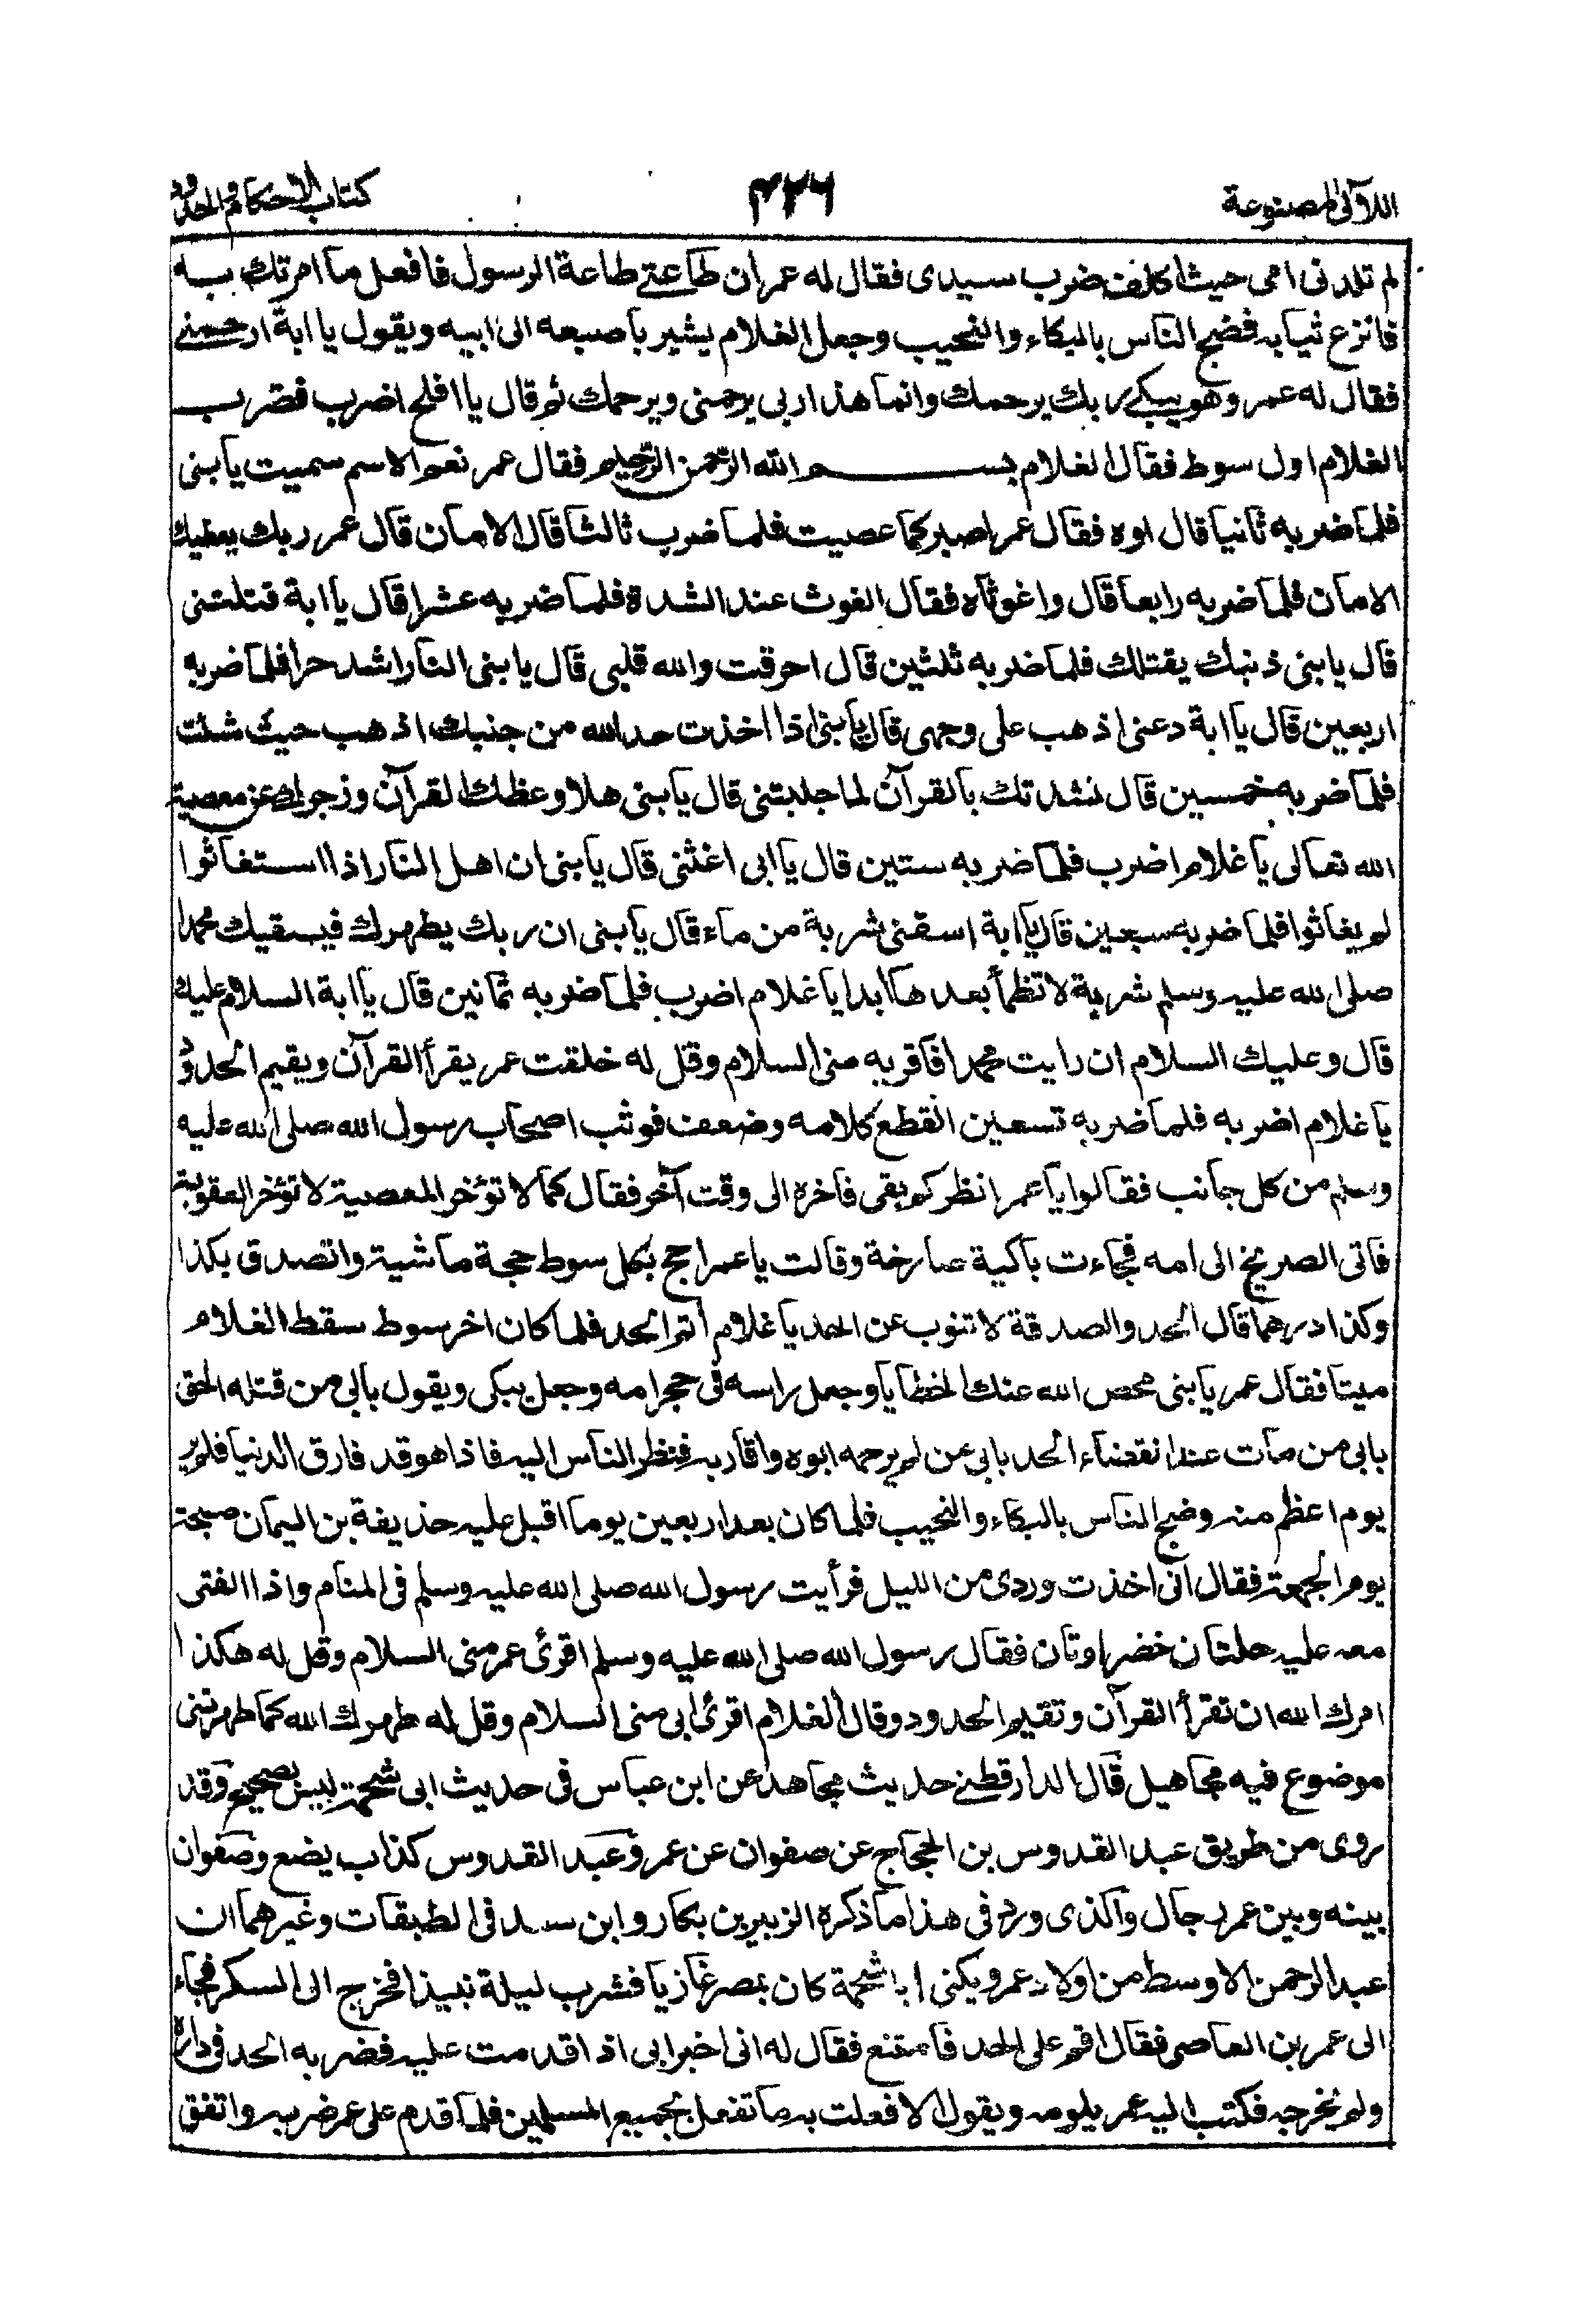 اللآلى المصنوعة
٤٢٦
كتاب الاحكام والحدود
لم تلدنى امى حيث اكلف ضرب سيدى فقال له عمر ان طاعتى طاعة الرسول فافعل ما امرتك به
فانزع ثيابه فضج الناس بالبكاء والنحيب وجعل الغلام يشير باصبعه الى ابيه ويقول يا ابة ارحمنى
فقال له عمر وهو يبكى ربك يرحمك وانما هذا ربى يرحمنى ويرحمك ثم قال يا افلح اضرب فضرب
الغلام اول سوط فقال الغلام بسم الله الرحمن الرحيم فقال عمر نعم الاسم سميت يا بنى
فلما ضربه ثانيا قال اوه فقال عمر اصبر كما عصيت فلما ضرب ثالثا قال الامان قال عمر ربك يعطيك
الامان فلما ضربه رابعا قال واغوثاه فقال الغوث عند الشدة فلما ضربه عشرا قال يا ابة قتلتنى
قال يا بنى ذنبك يقتلك فلما ضربه ثلثين قال احرقت والله قلبى قال يا بنى النار اشد حرا فلما ضربه
اربعين قال يا ابة دعنى اذهب على وجهى قال يا بنى اذا اخذت حد الله من جنبك اذهب حيث شئت
فلما ضربه خمسين قال نشدتك بالقرآن لما جلبتنى قال يا بنى هلا وعظك القرآن وزجرك عن معصية
الله تعالى يا غلام اضرب فلما ضربه ستين قال يا ابى اغثنى قال يا بنى ان اهل النار اذا استغاثوا
لم يغاثوا فلما ضربه سبعين قال يا ابة اسقنى شربة من ماء قال يا بنى ان ربك يطهرك فيسقيك محمدا
صلى الله عليه وسلم شربة لا تظمأ بعدها ابدا يا غلام اضرب فلما ضربه ثمانين قال يا ابة السلام عليك
قال وعليك السلام ان رايت محمدا فاقربه منى السلام وقل له خلفت عمر يقرأ القرآن ويقيم الحدود
يا غلام اضربه فلما ضربه تسعين انقطع كلامه وضعف فوثب اصحاب رسول الله صلى الله عليه
وسلم من كل جانب فقالوا يا عمر انظر كم بقى فاخره الى وقت آخر فقال كما لا تؤخر المعصية لا تؤخر العقوبة
فاتى الصريخ الى امه فجاءت باكية صارخة وقالت يا عمر احج بكل سوط حجة ماشية واتصدق بكذا
وكذا درهما قال الحد والصدقة لا تنوب عن الحد يا غلام اتم الحد فلما كان اخر سوط سقط الغلام
ميتا فقال عمر يا بنى محص الله عنك الخطايا وجعل راسه فى حجرامه وجعل يبكى ويقول بابى من قتله الحق
بابى من مات عند انقضاء الحد بابى من لم يرحمه ابوه واقاربه فنظر الناس اليه فاذا هو قد فارق الدنيا فلم ير
يوم اعظم منه وضج الناس بالبكاء والنحيب فلما كان بعد اربعين يوما اقبل عليه حذيفة بن اليمان صبيحة
يوم الجمعة فقال انى اخذت وردى من الليل فرأيت رسول الله صلى الله عليه وسلم فى المنام واذا الفتى
معه عليه حلتان خضراوتان فقال رسول الله صلى الله عليه وسلم اقرئ عمر منى السلام وقل له هكذا
امرك الله ان تقرأ القرآن وتقيم الحدود وقال الغلام اقرئ ابى منى السلام وقل له طهرك الله كما طهرتنى
موضوع فيه مجاهيل قال الدارقطنى حديث مجاهد عن ابن عباس فى حديث ابى شحمة ليس بصحيح وقد
روى من طريق عبد القدوس بن الحجاج عن صفوان عن عمر وعبد القدوس كذاب يضع وصفوان
بينه وبين عمر رجال والذى ورد فى هذا ما ذكره الزبير بن بكار وابن سعد فى الطبقات وغيرهما ان
عبد الرحمن الاوسط من اولاد عمر ويكنى ابا شحمة كان بمصر غازيا فشرب ليلة نبيذا فخرج الى السكر فجاء
الى عمر بن العاصى فقال اقم على الحد فامتنع فقال له انى اخبر ابى اذا قدمت عليه فضربه الحد فى داره
ولم يخرجه فكتب اليه عمر يلومه ويقول الا فعلت به ما تفعل بجميع المسلمين فلما قدم على عمر ضربه واتفق